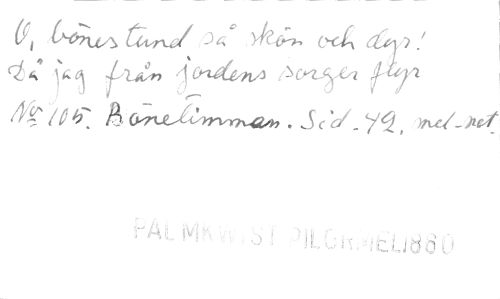 O, bönestund så skön och dyr!
Då jag från jordens sorger flyr
No 105. Bönetimman. Sid. 42. mel-not.
PALMKWIST PILGRMEL1880